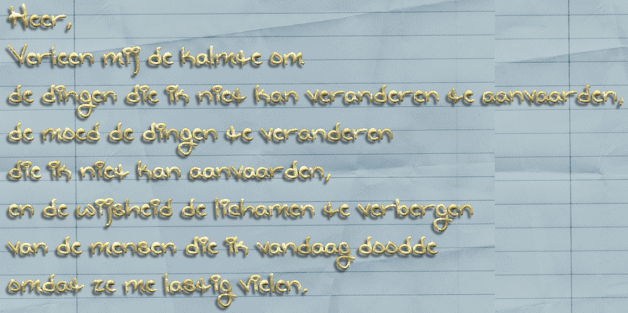 Heer,
Verleen mij de kalmte om
de dingen die ik niet kan veranderen te aanvaarden,
de moed de dingen te veranderen
die ik niet kan aanvaarden,
en de wijsheid de lichamen te verbergen
van de mensen die ik vandaag doodde
omdat ze me lastig vielen.